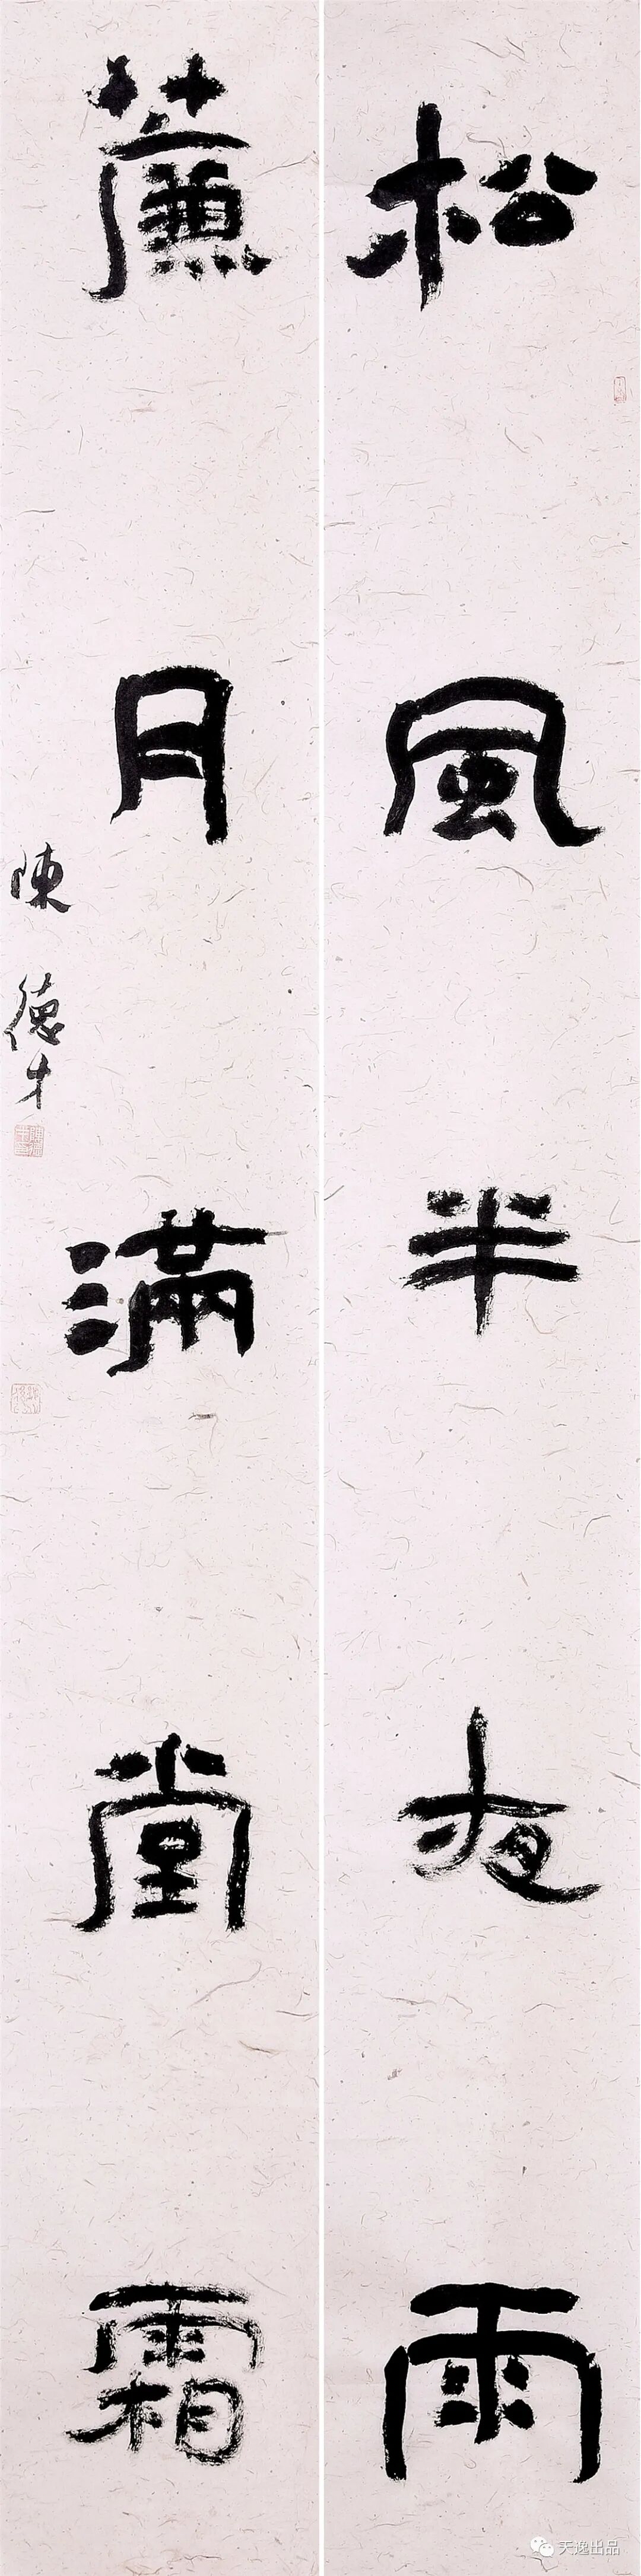 松風半夜雨
薕月满堂霜
陳德才
天逸出品